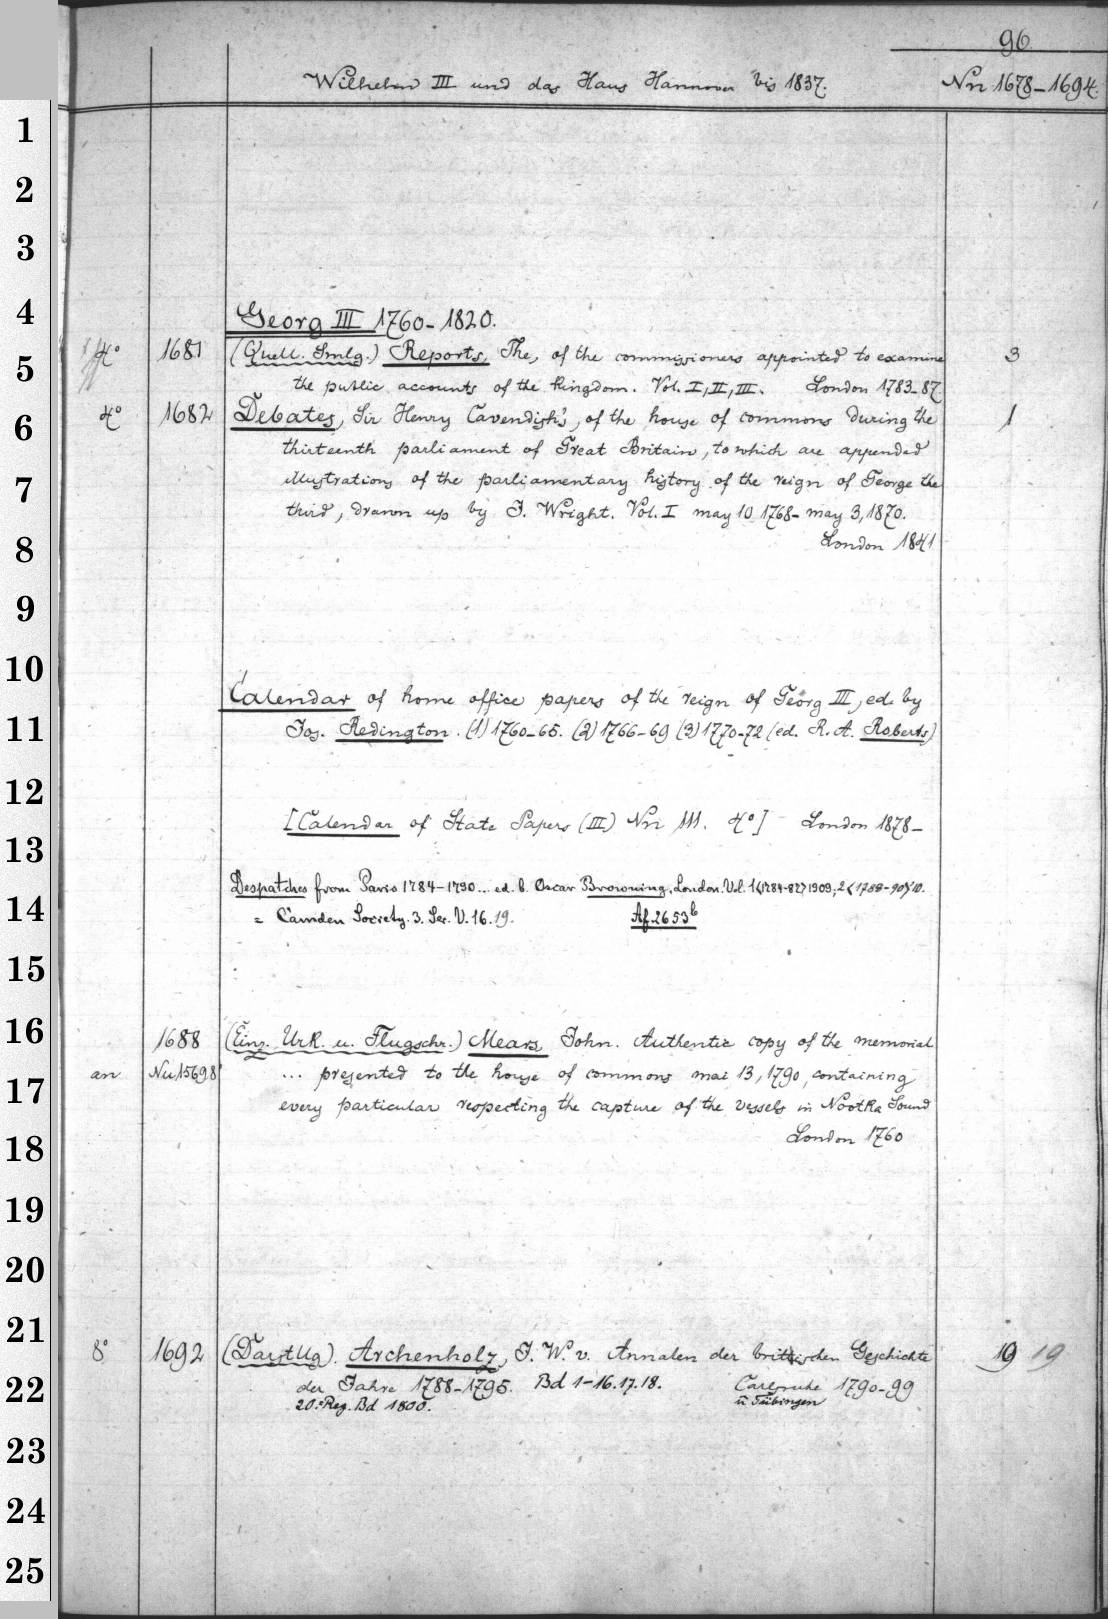 96
Wilhelm III und das Haus Hannover bis 1837. Nn 1678-1694.
1
2
3
4
Georg III 1760-1820.
5
4° 1681 (Quell. Smlg.) Reports, The, of the commissioners appointed to examine 3
the public accounts of the kingdom. Vol. I, II, III. London 1783-87
6
4° 1682 Debates, Sir Henry Cavendish's, of the house of commons during the 1
thirteenth parliament of Great Britain, to which are appended
7
illustrations of the parliamentary history of the reign of George the
third, drawn up by J. Wright. Vol. I may 10 1768- may 3, 1870.
8
London 1841
9
10
Calendar of home office papers of the reign of Georg III, ed. by
11
Jos. Redington. (1) 1760-65. (2) 1766-69 (3) 1770-72 (ed. R. A. Roberts)
12
[Calendar of State Papers (III) Nn 111. 4°] London 1878-
13
Despatches from Paris 1784-1790... ed. b. Oscar Browning, London. Vol. 1<1784-87> 1909; 2<1788-90> 10.
14
= Camden Society. 3. Ser. V. 16. 19. Af. 2653b
15
16
1688 (Einz. Urk. u. Flugschr.) Mears John. Authentic copy of the memorial
an Nu 15698 ... presented to the house of commons mai 13, 1790, containing
17
every particular respecting the capture of the vessels in Nootka Sound
18
London 1760
19
20
21
8° 1692 (Darstllg). Archenholz, J. W. v. Annalen der brittischen Geschichte 19 19
22
der Jahre 1788-1795. Bd 1-16. 17. 18. Carlsruhe 1790-99
20. Reg. Bd 1800. u Tübingen
23
24
25